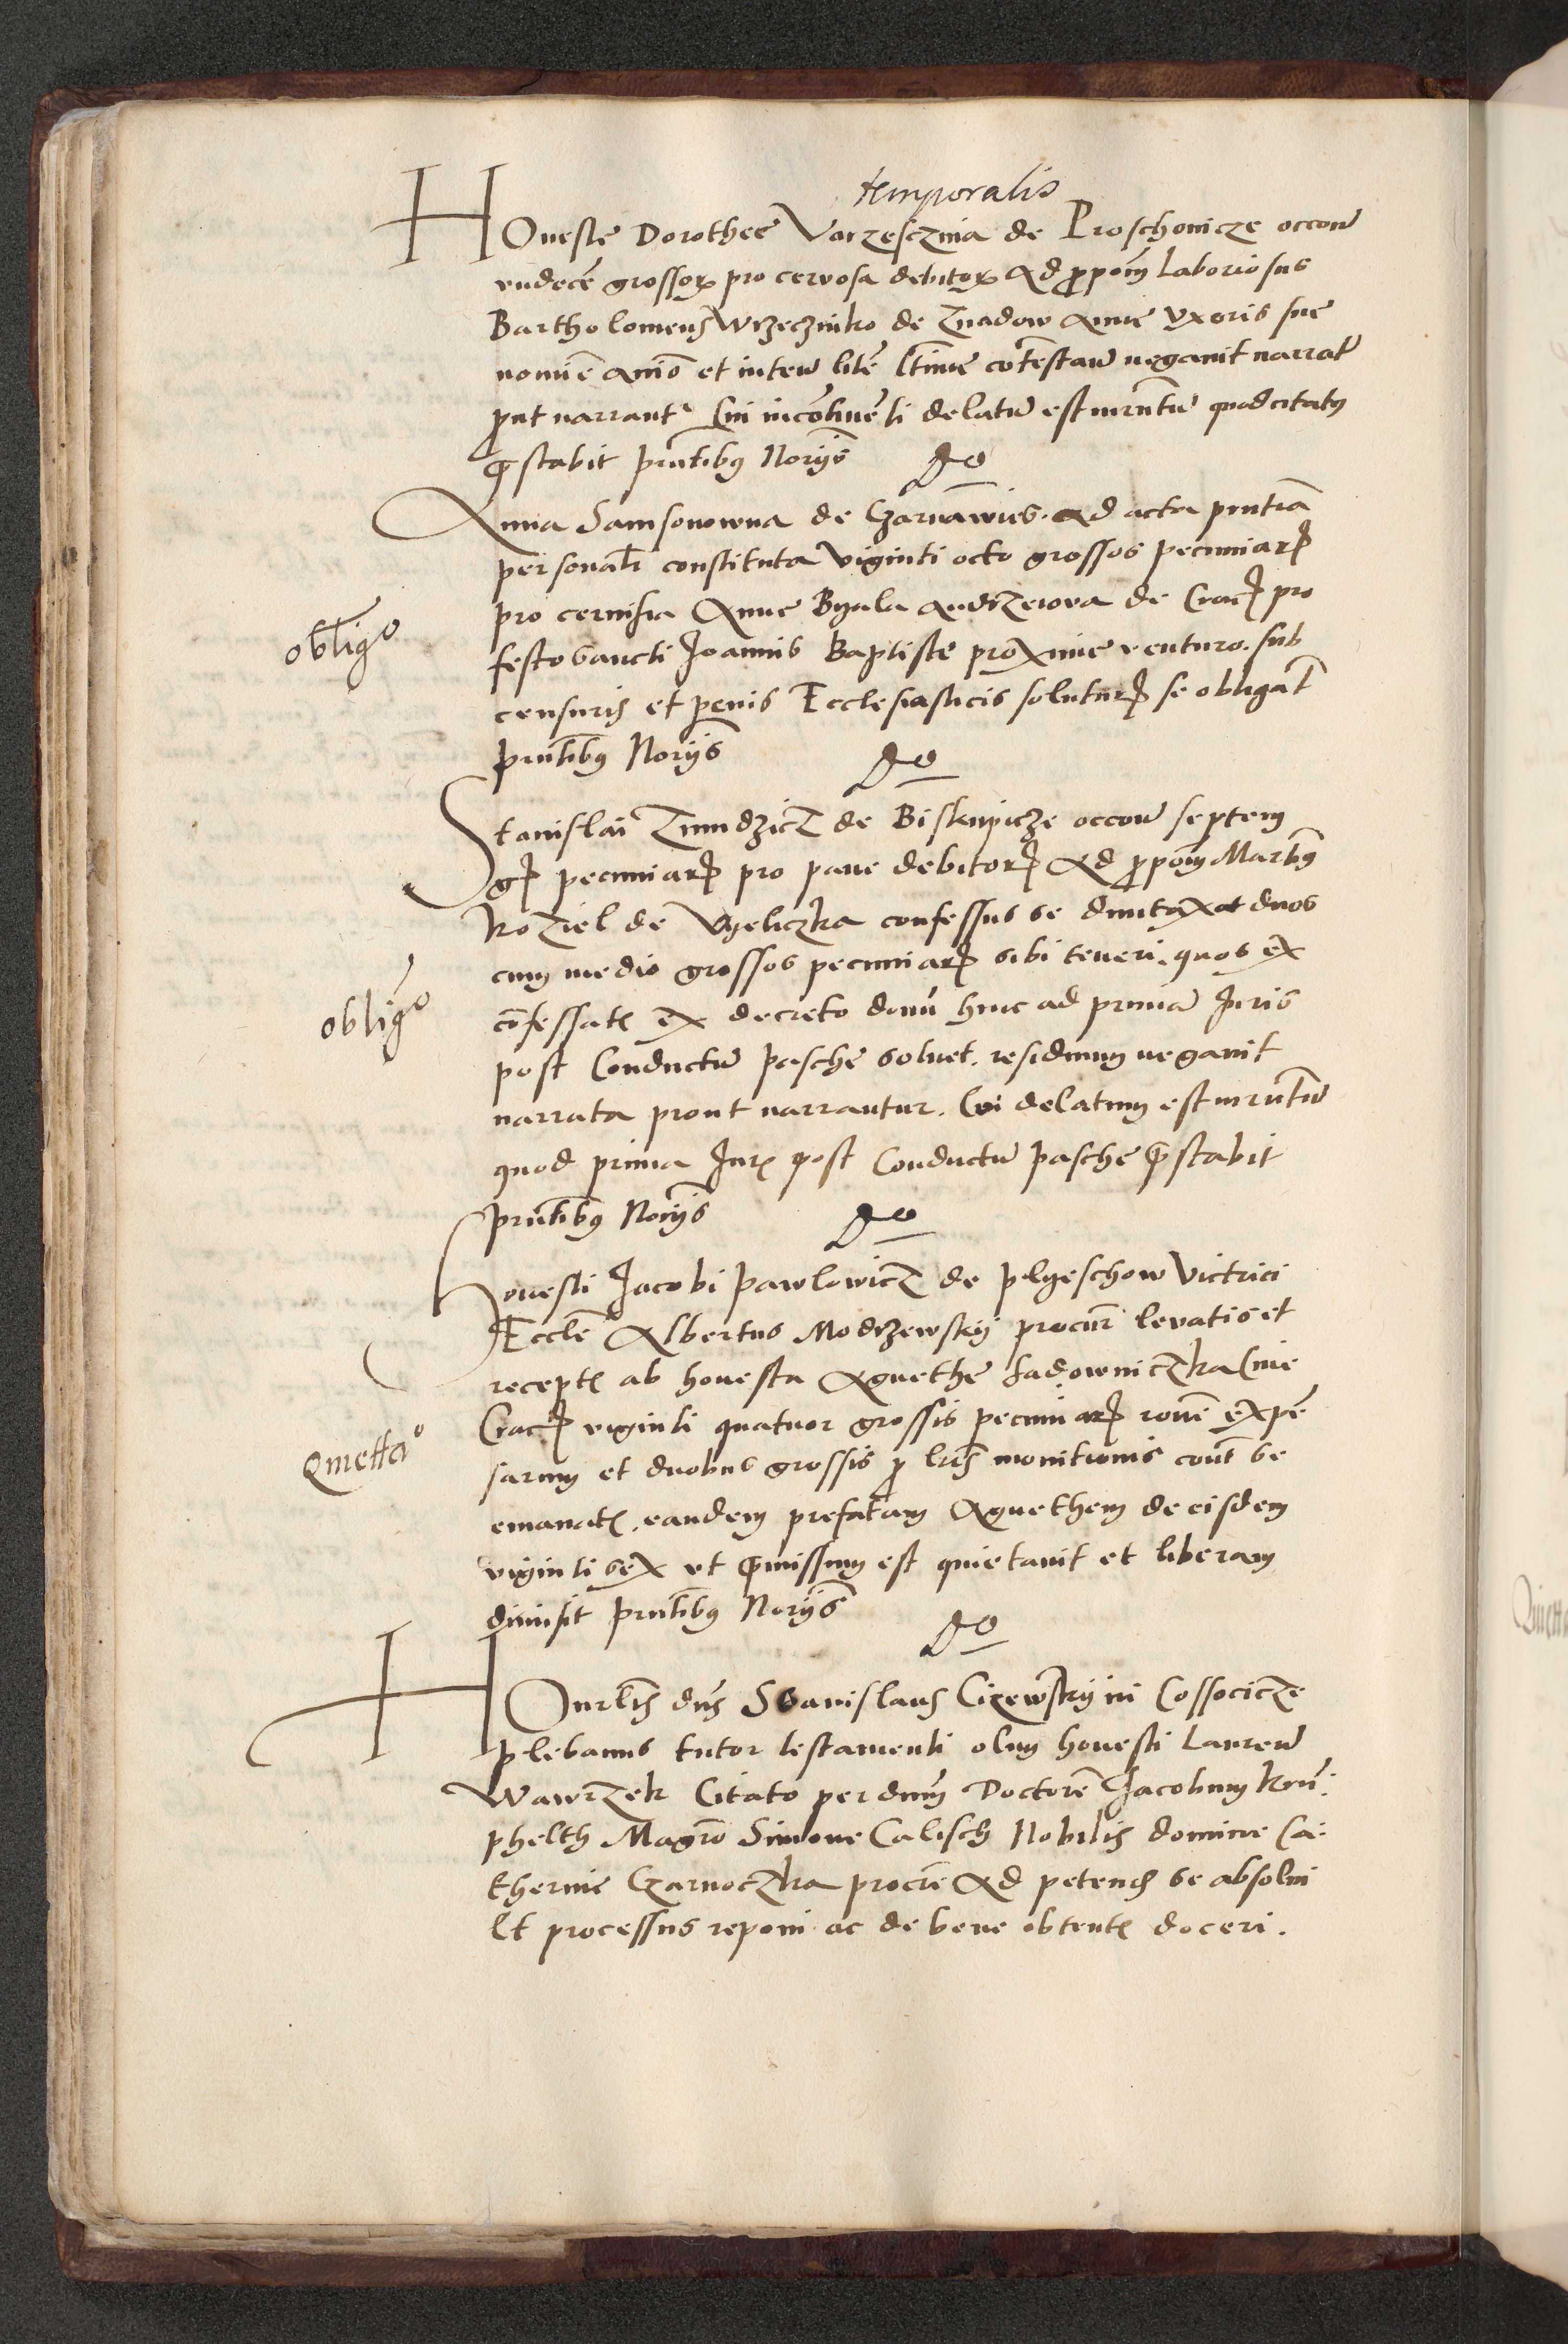 temporalis
Honeste Dorothee Varzesczina de Proschovicze occoñ
undecẽ grossoꝝ pro cervosa debitoꝝ Ad ꝓpoñ Laboriosus
Bartholomeus Wrzeczinko de Znadow Anne Uxoris sue
nomiẽ Aniõ et inteñ litẽ ltime cõtestañ negavit narrat
ꝓut narrantr Cui incõtinẽti delatũ est iurñtũ quod citatꝰ
p̃stabit prñtibꝰ Noriis
Do
Anna Samsonowna de Czarnawies ad acta prñtia
personalr constituta viginti octo grossos pecuniarꝫ
pro cervisia Anne Byala Andrzeiova de Cracꝫ pro
festo sancti Joannis Baptiste proxime venturo sub
censuris et penis Ecclesiasticis soluturꝫ se obligat
prñtibꝰ Noriis
obligo
Do
Stanislai Zmudzicz de Biskupicze occoñ septem
gꝫ pecuniarꝫ pro pane debitorꝫ Ad ꝓpoñ Martinꝰ
Koziel de Vyeliczka confessus se duntaxat duos
cum medio grossos pecuniarꝫ sibi teneri. quos ex
cõfessatꝭ ex decreto domi hinc ad primã Juris
post Conductũ pasche solvet. residuum negavit
narrata prout narrantur. Cui delatum est iurñtũ
quod prima Jurꝭ post Conductũ pasche p̃stabit
prñtibꝰ Noriis
obligo
Do
Honesti Jacobi Pawlowicz de Plyeschow Victrici
Ecclẽ Albertus Modrzewskij procur̃ levatis et
receptꝭ ab honesta Agnethe Sadowniczka Cive
Cracꝫ viginti quatuor grossis pecuniarꝫ rõne expẽ
sarum et duobus grossis ꝓ lris monitionis cont̃ se
emanatꝭ. eandem prefatam Agnethem de eisdem
viginti sex ut p̃missum est quietavit et liberam
dimisit prñtibꝰ Noriis
Qmetta°
Do
Honrlis dñs Stanislaus Cizewskij in Cossocicze
plebanus tutor testamenti olim honesti Laureñ
Wawrzek Citato per dnm̃ Doctorẽ Jacobum Krũ:
phelth Magrõ Simone Calisch Nobilis domine Ca:
therine Czarnoczka procrẽ Ad petend se absolvi
Et processus reponi ac de bene obtentꝭ doceri.